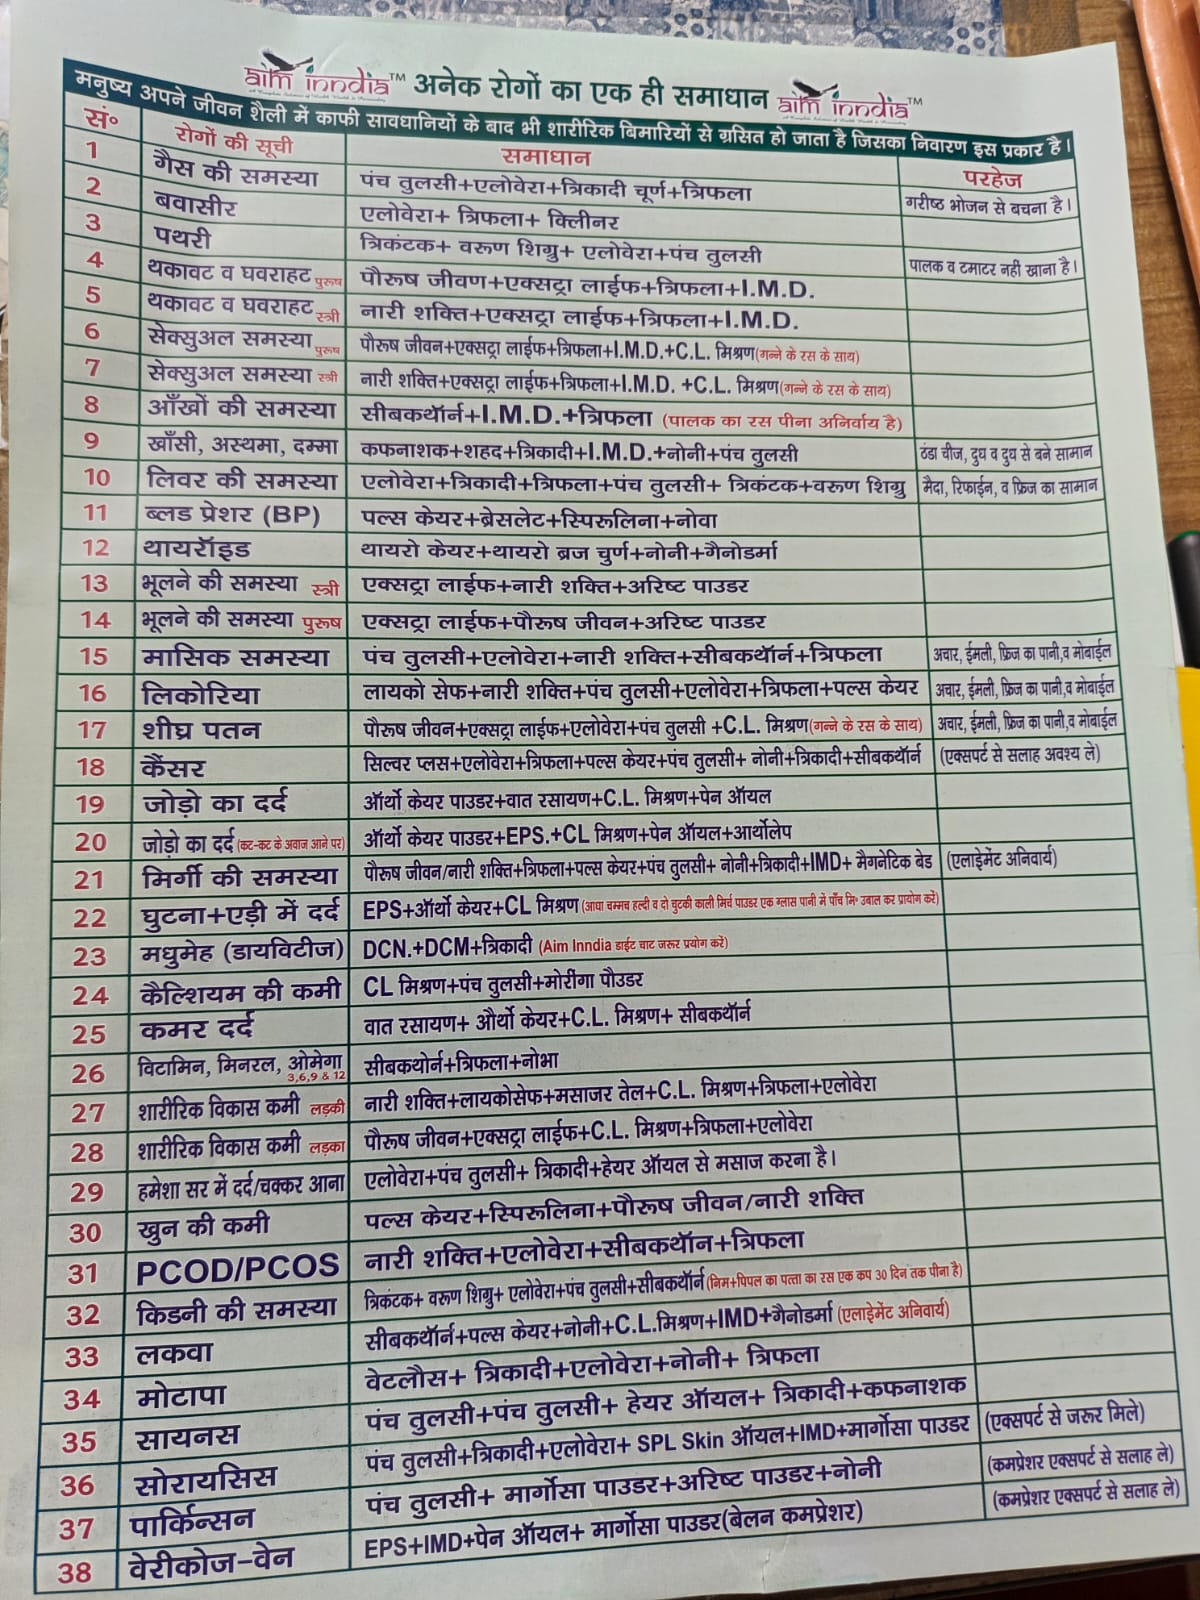 aim inndia™ अनेक रोगों का एक ही समाधान aim inndia™
मनुष्य अपने जीवन शैली में काफी सावधानियों के बाद भी शारीरिक बिमारियों से ग्रसित हो जाता है जिसका निवारण इस प्रकार है।
सं॰ रोगों की सूची समाधान परहेज
1 गैस की समस्या पंच तुलसी+एलोवेरा+त्रिकादी चूर्ण+त्रिफला गरीष्ठ भोजन से बचना है।
2 बवासीर एलोवेरा+ त्रिफला+ क्लिीनर
3 पथरी त्रिकंटक+ वरूण शिग्रु+ एलोवेरा+पंच तुलसी पालक व टमाटर नही खाना है।
4 थकावट व घवराहट पुरूष पौरूष जीवण+एक्सट्रा लाईफ+त्रिफला+I.M.D.
5 थकावट व घवराहट स्त्री नारी शक्ति+एक्सट्रा लाईफ+त्रिफला+I.M.D.
6 सेक्सुअल समस्या पुरूष पौरूष जीवन+एक्सट्रा लाईफ+त्रिफला+I.M.D.+C.L. मिश्रण(गन्ने के रस के साथ)
7 सेक्सुअल समस्या स्त्री नारी शक्ति+एक्सट्रा लाईफ+त्रिफला+I.M.D. +C.L. मिश्रण(गन्ने के रस के साथ)
8 आँखों की समस्या सीबकथॉर्न+I.M.D.+त्रिफला (पालक का रस पीना अनिर्वाय है)
9 खाँसी, अस्थमा, दम्मा कफनाशक+शहद+त्रिकादी+I.M.D.+नोनी+पंच तुलसी ठंडा चीज, दुध व दुध से बने सामान
10 लिवर की समस्या एलोवेरा+त्रिकादी+त्रिफला+पंच तुलसी+ त्रिकंटक+वरूण शिग्रु मैदा, रिफाईन, व फ्रिज का सामान
11 ब्लड प्रेशर (BP) पल्स केयर+ब्रेसलेट+स्पिरूलिना+नोवा
12 थायरॉइड थायरो केयर+थायरो ब्रज चुर्ण+नोनी+गैनोडर्मा
13 भूलने की समस्या स्त्री एक्सट्रा लाईफ+नारी शक्ति+अरिष्ट पाउडर
14 भूलने की समस्या पुरूष एक्सट्रा लाईफ+पौरूष जीवन+अरिष्ट पाउडर
15 मासिक समस्या पंच तुलसी+एलोवेरा+नारी शक्ति+सीबकथॉर्न+त्रिफला अचार, ईमली, फ्रिज का पानी,व मोबाईल
16 लिकोरिया लायको सेफ+नारी शक्ति+पंच तुलसी+एलोवेरा+त्रिफला+पल्स केयर अचार, ईमली, फ्रिज का पानी,व मोबाईल
17 शीघ्र पतन पौरूष जीवन+एक्सट्रा लाईफ+एलोवेरा+पंच तुलसी +C.L. मिश्रण(गन्ने के रस के साथ) अचार, ईमली, फ्रिज का पानी,व मोबाईल
18 कैंसर सिल्वर प्लस+एलोवेरा+त्रिफला+पल्स केयर+पंच तुलसी+ नोनी+त्रिकादी+सीबकथॉर्न (एक्सपर्ट से सलाह अवश्य ले)
19 जोड़ो का दर्द ऑर्थो केयर पाउडर+वात रसायण+C.L. मिश्रण+पेन ऑयल
20 जोड़ो का दर्द(कट-कट के अवाज आने पर) ऑर्थो केयर पाउडर+EPS.+CL मिश्रण+पेन ऑयल+आर्थोलेप
21 मिर्गी की समस्या पौरूष जीवन/नारी शक्ति+त्रिफला+पल्स केयर+पंच तुलसी+ नोनी+त्रिकादी+IMD+ मैगनेटिक बेड (एलाडेमेंट अनिवार्य)
22 घुटना+एड़ी में दर्द EPS+ऑर्थो केयर+CL मिश्रण(आधा चम्मच हल्दी व दो चुटकी काली मिर्च पाउडर एक ग्लास पानी में पाँच मि॰ उबाल कर प्रायोग करें)
23 मधुमेह (डायविटीज) DCN.+DCM+त्रिकादी (Aim Inndia डाईट चाट जरूर प्रयोग करें)
24 कैल्शियम की कमी CL मिश्रण+पंच तुलसी+मोरींगा पौउडर
25 कमर दर्द वात रसायण+ और्थो केयर+C.L. मिश्रण+ सीबकथॉर्न
26 विटामिन, मिनरल, ओमेगा 3,6,9 & 12 सीबकथोर्न+त्रिफला+नोभा
27 शारीरिक विकास कमी लड़की नारी शक्ति+लायकोसेफ+मसाजर तेल+C.L. मिश्रण+त्रिफला+एलोवेरा
28 शारीरिक विकास कमी लड़का पौरूष जीवन+एक्सट्रा लाईफ+C.L. मिश्रण+त्रिफला+एलोवेरा
29 हमेशा सर में दर्द/चक्कर आना एलोवेरा+पंच तुलसी+ त्रिकादी+हेयर ऑयल से मसाज करना है।
30 खुन की कमी पल्स केयर+स्पिरूलिना+पौरूष जीवन/नारी शक्ति
31 PCOD/PCOS नारी शक्ति+एलोवेरा+सीबकथॉन+त्रिफला
32 किडनी की समस्या त्रिकंटक+ वरूण शिग्रु+ एलोवेरा+पंच तुलसी+सीबकथॉर्न(निम+पिपल का पत्ता का रस एक कप 30 दिन तक पीना है)
33 लकवा सीबकथॉर्न+पल्स केयर+नोनी+C.L.मिश्रण+IMD+गैनोडर्मा (एलाडेमेंट अनिवार्य)
34 मोटापा वेटलौस+ त्रिकादी+एलोवेरा+नोनी+ त्रिफला
35 सायनस पंच तुलसी+पंच तुलसी+ हेयर ऑयल+ त्रिकादी+कफनाशक
36 सोरायसिस पंच तुलसी+त्रिकादी+एलोवेरा+ SPL Skin ऑयल+IMD+मार्गोसा पाउडर (एक्सपर्ट से जरूर मिले)
37 पार्किन्सन पंच तुलसी+ मार्गोसा पाउडर+अरिष्ट पाउडर+नोनी (कमप्रेशर एक्सपर्ट से सलाह ले)
38 वेरीकोज-वेन EPS+IMD+पेन ऑयल+ मार्गोसा पाउडर(बेलन कमप्रेशर) (कमप्रेशर एक्सपर्ट से सलाह ले)